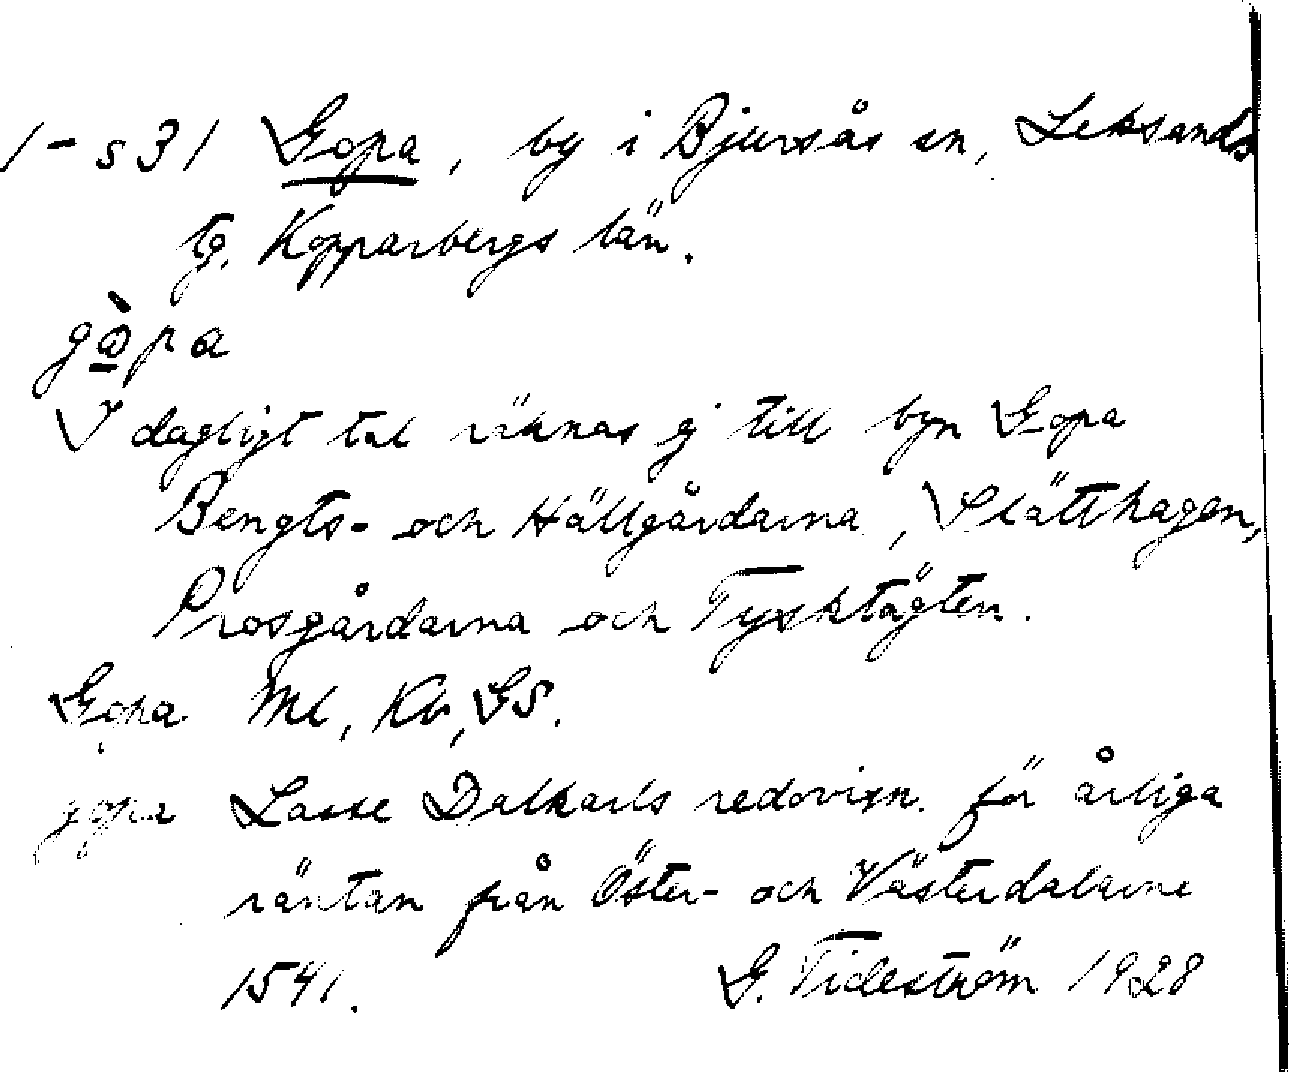 1-s31 Gopa, by i Bjursås sn, Leksands
tg. Kopparbergs län.
gòpa
I dagligt tal räknas ej till byn Gopa
Bengts- och Hällgårdarna, Slätthagen,
Prosgårdarna och Tysktägten.
Gopa Ml, Kb, GS.
gopa Lasse Dalkarls redovisn. för årliga
räntan från Öster- och Västerdalarne
1541. G. Tideström 1928